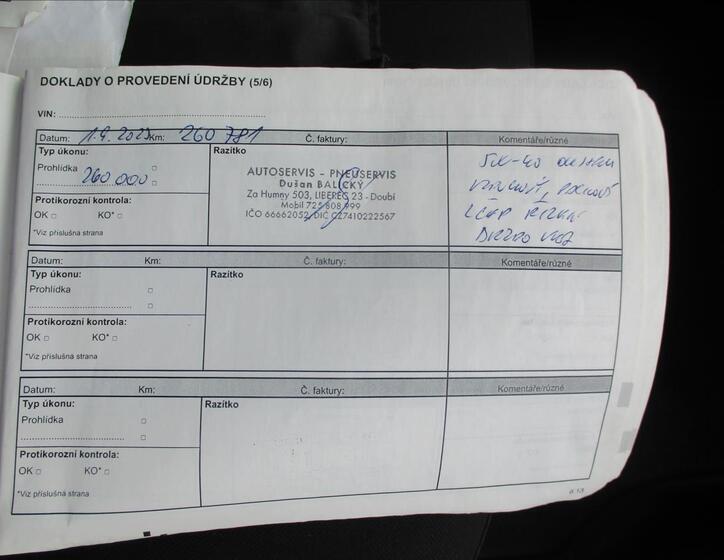 DOKLADY O PROVEDENÍ ÚDRŽBY (5/6)
VIN:
Datum: 1.9.2023 Km: 260 781 Č. faktury: Komentáře/různé
Typ úkonu: Razítko
Prohlídka □
260 000 □
AUTOSERVIS - PNEUSERVIS
Dušan BALICKÝ
Za Humny 503, LIBEREC 23 - Doubí
Mobil 725 808 999
IČO 66662052, DIČ CZ7410222567
5W-40
Protikorozní kontrola:
OK □ KO* □
*Viz příslušná strana
Datum: Km: Č. faktury: Komentáře/různé
Typ úkonu: Razítko
Prohlídka □
□
Protikorozní kontrola:
OK □ KO* □
*Viz příslušná strana
Datum: Km: Č. faktury: Komentáře/různé
Typ úkonu: Razítko
Prohlídka □
□
Protikorozní kontrola:
OK □ KO* □
*Viz příslušná strana